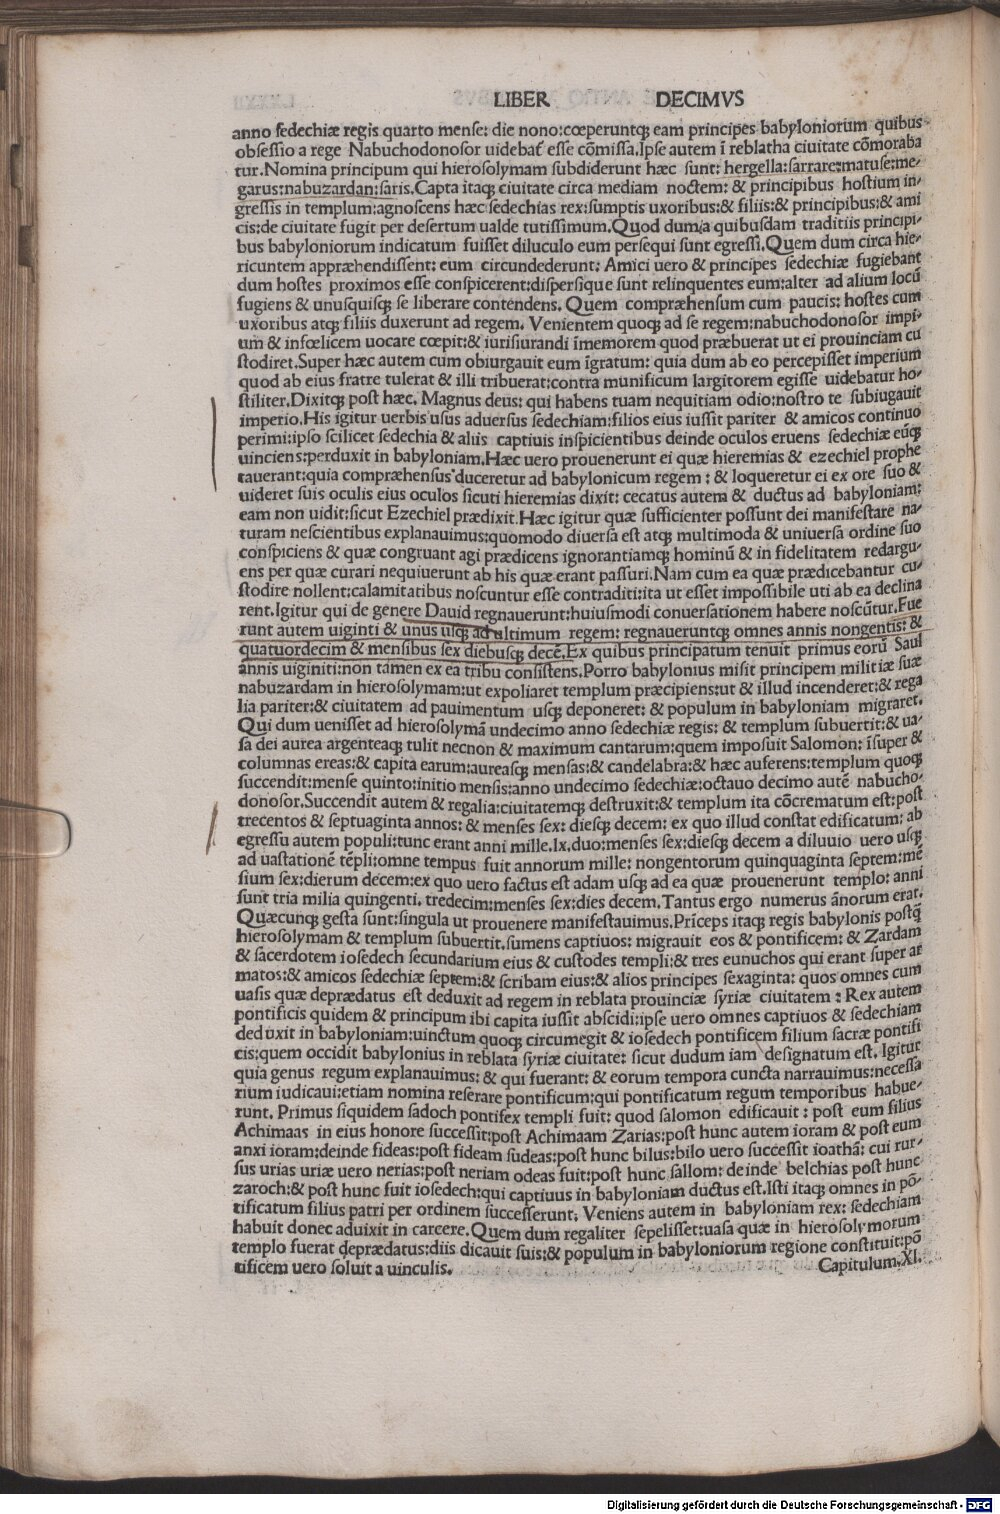 LIBER DECIMVS
anno sedechiæ regis quarto mense: die nono:cœperuntq; eam principes babyloniorum quibus
obsessio a rege Nabuchodonosor uidebat̃ esse cõmissa.Ipse autem ĩ reblatha ciuitate cõmoraba
tur.Nomina principum qui hierosolymam subdiderunt hæc sunt: hergella:sarrare:matuse:me-
garus:nabuzardan:saris.Capta itaq; ciuitate circa mediam noctem: & principibus hostium in-
gressis in templum:agnoscens hæc sedechias rex:sumptis uxoribus:& filiis:& principibus:& ami
cis:de ciuitate fugit per desertum ualde tutissimum.Quod dum a quibusdam traditiis principi-
bus babyloniorum indicatum fuisset diluculo eum persequi sunt egressi.Quem dum circa hie-
ricuntem appræhendissent: eum circundederunt: Amici uero & principes sedechiæ fugiebant
dum hostes proximos esse conspicerent:dispersique sunt relinquentes eum:alter ad alium locũ
fugiens & unusquisq; se liberare contendens. Quem compræhensum cum paucis: hostes cum
uxoribus atq; filiis duxerunt ad regem. Venientem quoq; ad se regem:nabuchodonosor impi-
um & infœlicem uocare cœpit:& iurisiurandi ĩmemorem quod præbuerat ut ei prouinciam cu
stodiret.Super hæc autem cum obiurgauit eum ĩgratum: quia dum ab eo percepisset imperium
quod ab eius fratre tulerat & illi tribuerat:contra munificum largitorem egisse uidebatur ho-
stiliter.Dixitq; post hæc. Magnus deus: qui habens tuam nequitiam odio:nostro te subiugauit
imperio.His igitur uerbis usus aduersus sedechiam:filios eius iussit pariter & amicos continuo
perimi:ipso scilicet sedechia & aliis captiuis inspicientibus deinde oculos eruens sedechiæ eũq;
uinciens:perduxit in babyloniam.Hæc uero prouenerunt ei quæ hieremias & ezechiel prophe
tauerant:quia compræhensus duceretur ad babylonicum regem : & loqueretur ei ex ore suo &
uideret suis oculis eius oculos sicuti hieremias dixit: cecatus autem & ductus ad babyloniam:
eam non uidit:sicut Ezechiel prædixit.Hæc igitur quæ sufficienter possunt dei manifestare na-
turam nescientibus explanauimus:quomodo diuersa est atq; multimoda & uniuersa ordine suo
conspiciens & quæ congruant agi prædicens ignorantiamq; hominũ & in fidelitatem redargu-
ens per quæ curari nequiuerunt ab his quæ erant passuri.Nam cum ea quæ prædicebantur cu-
stodire nollent:calamitatibus noscuntur esse contraditi:ita ut esset impossibile uti ab ea declina
rent.Igitur qui de genere Dauid regnauerunt:huiusmodi conuersationem habere noscũtur.Fue
runt autem uiginti & unus usq; ad ultimum regem: regnaueruntq; omnes annis nongentis: &
quatuordecim & mensibus sex diebusq; decẽ.Ex quibus principatum tenuit primus eorũ Saul
annis uiginiti:non tamen ex ea tribu consistens.Porro babylonius misit principem militiæ suæ
nabuzardam in hierosolymam:ut expoliaret templum præcipiens:ut & illud incenderet:& rega
lia pariter:& ciuitatem ad pauimentum usq; deponeret: & populum in babyloniam migraret.
Qui dum uenisset ad hierosolymã undecimo anno sedechiæ regis: & templum subuertit:& ua-
sa dei aurea argenteaq; tulit necnon & maximum cantarum:quem imposuit Salomon: ĩsuper &
columnas ereas:& capita earum:aureasq; mensas:& candelabra:& hæc auferens:templum quoq;
succendit:mense quinto:initio mensis:anno undecimo sedechiæ:octauo decimo autẽ nabucho-
donosor.Succendit autem & regalia:ciuitatemq; destruxit:& templum ita cõcrematum est:post
trecentos & septuaginta annos: & menses sex: diesq; decem: ex quo illud constat edificatum: ab
egressu autem populi:tunc erant anni mille.lx.duo:menses sex:diesq; decem a diluuio uero usq;
ad uastationẽ tẽpli:omne tempus fuit annorum mille: nongentorum quinquaginta septem:mẽ
sium sex:dierum decem:ex quo uero factus est adam usq; ad ea quæ prouenerunt templo: anni
sunt tria milia quingenti. tredecim:menses sex:dies decem.Tantus ergo numerus ãnorum erat.
Quæcunq; gesta sunt:singula ut prouenere manifestauimus.Prĩceps itaq; regis babylonis postq̃
hierosolymam & templum subuertit.sumens captiuos: migrauit eos & pontificem: & Zardam
& sacerdotem iosedech secundarium eius & custodes templi:& tres eunuchos qui erant super ar
matos:& amicos sedechiæ septem:& scribam eius:& alios principes sexaginta: quos omnes cum
uasis quæ deprædatus est deduxit ad regem in reblata prouinciæ syriæ ciuitatem : Rex autem
pontificis quidem & principum ibi capita iussit abscidi:ipse uero omnes captiuos & sedechiam
deduxit in babyloniam:uinctum quoq; circumegit & iosedech pontificem filium sacræ pontifi
cis:quem occidit babylonius in reblata syriæ ciuitate: sicut dudum iam designatum est. Igitur
quia genus regum explanauimus: & qui fuerant: & eorum tempora cuncta narrauimus:necessa
rium iudicaui:etiam nomina reserare pontificum:qui pontificatum regum temporibus habue-
runt. Primus siquidem sadoch pontifex templi fuit: quod salomon edificauit : post eum filius
Achimaas in eius honore successit:post Achimaam Zarias:post hunc autem ioram & post eum
anxi ioram:deinde fideas:post fideam sudeas:post hunc bilus:bilo uero successit ioathã: cui rur-
sus urias uriæ uero nerias:post neriam odeas fuit:post hunc sallom: deinde belchias post hunc
zaroch:& post hunc fuit iosedech:qui captiuus in babyloniam ductus est.Isti itaq; omnes in põ-
tificatum filius patri per ordinem successerunt. Veniens autem in babyloniam rex: sedechiam
habuit donec aduixit in carcere.Quem dum regaliter sepelisset:uasa quæ in hierosolymorum
templo fuerat deprædatus:diis dicauit suis:& populum in babyloniorum regione constituit:põ
tificem uero soluit a uinculis. Capitulum.XI.
Digitalisierung gefördert durch die Deutsche Forschungsgemeinschaft - DFG